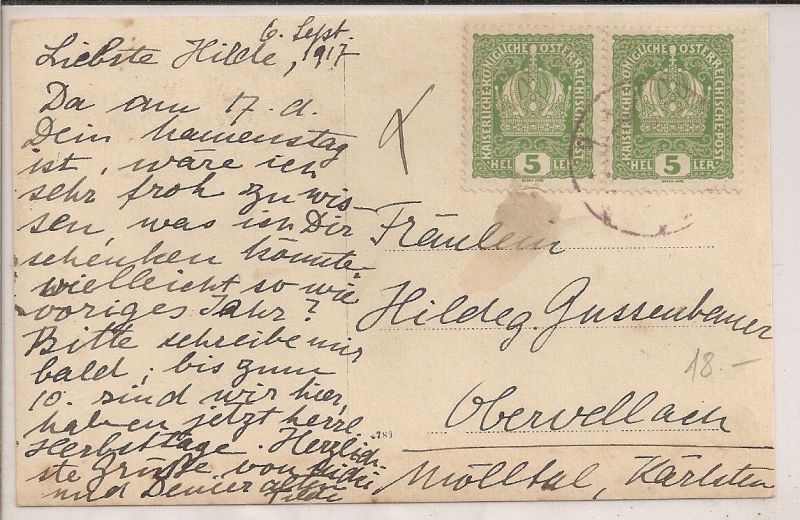 6. Sept.
Liebste Hilde, 1917
Da am 17. d.
Dein Namenstag
ist, wäre ich
sehr froh zu wis-
sen, was ich Dir
schenken könnte
vielleicht so wie
voriges Jahr?
Bitte schreibe mir
bald, bis zum
10. sind wir hier,
haben jetzt herrl.
Herbsttage. Herzlich-
ste Grüße von
und Deiner alten
KAISERLICHE KÖNIGLICHE ÖSTERREICHISCHE POST
HEL 5 LER
KAISERLICHE KÖNIGLICHE ÖSTERREICHISCHE POST
HEL 5 LER
Fräulein
Hildeg. Gussenbauer
18.-
Obervellach
Mölltal, Kärnten